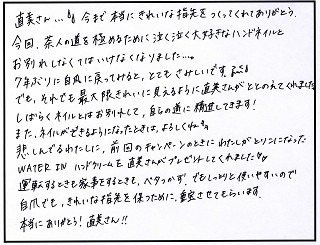 直美さん…💧今まで本当にきれいな指先をつくってくれてありがとう。
今回、茶人の道を極めるために泣く泣く大好きなハンドネイルと
お別れしなくてはいけなくなりました…。
7年ぶりに自爪に戻ってみると、とてもさみしいです
でも、それでも最大限きれいに見えるように直美さんがととのえてくれました
しばらくネイルとはお別れして、自らの道に精進してきます!
また、ネイルができるようになったときは、よろしくね
悲しんでるわたしに、前回のキャンペーンのときにわたしがとりこになった
WATER IN ハンドクリームを直美さんがプレゼントしてくれました
運転するときも家事をするときも、ベタつかず、でもしっとりと使いやすいので
自爪でも、きれいな指先を保つために、重宝させてもらいます。
本当にありがとう!直美さん!!